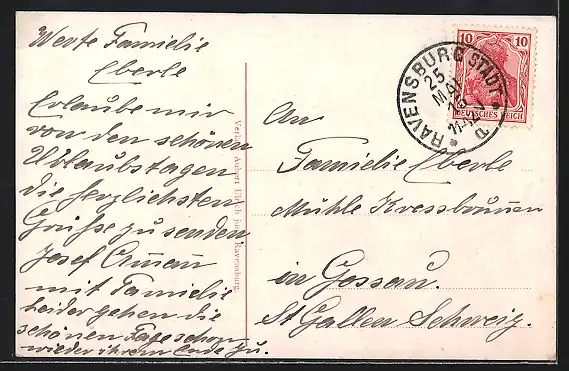 Werte Familie
Eberle
Erlaube mir
von den schönen
Urlaubstagen
die herzlichsten
Grüße zu senden
Josef
mit Familie
leider gehen die
schönen Tage schon
wieder ihrem Ende zu.
Ravensburg
RAVENSBURG STADT
25
MAI
10
10
DEUTSCHES REICH
An
Familie Eberle
Mühle Kressbrunnen
in Gossau.
St Gallen Schweiz.